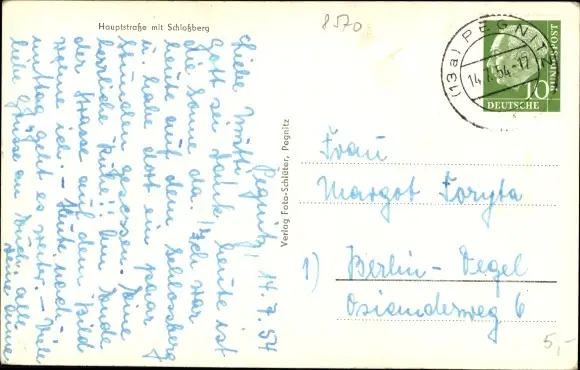 Hauptstraße mit Schloßberg
8570
Pegnitz, 14.7.54
Liebe Mutti!
Gott sei Dank, heute ist
die Sonne da! Ich war
heute auf dem Schlossberg
u. habe dort ein paar
Stunden gesessen. Eine
herrliche Ruhe!! Am Ende
der Strasse auf dem Bild
wohne ich. - Heute nach-
mittag geht es weiter. - Viele
liebe Grüsse an Euch alle
Deine
Verlag Foto-Schlüter, Pegnitz
(13a) PEGNITZ
14.7.54-17
10
DEUTSCHE
BUNDESPOST
Frau
Margot Foryta
1) Berlin-Tegel
Osianderweg 6
5,-